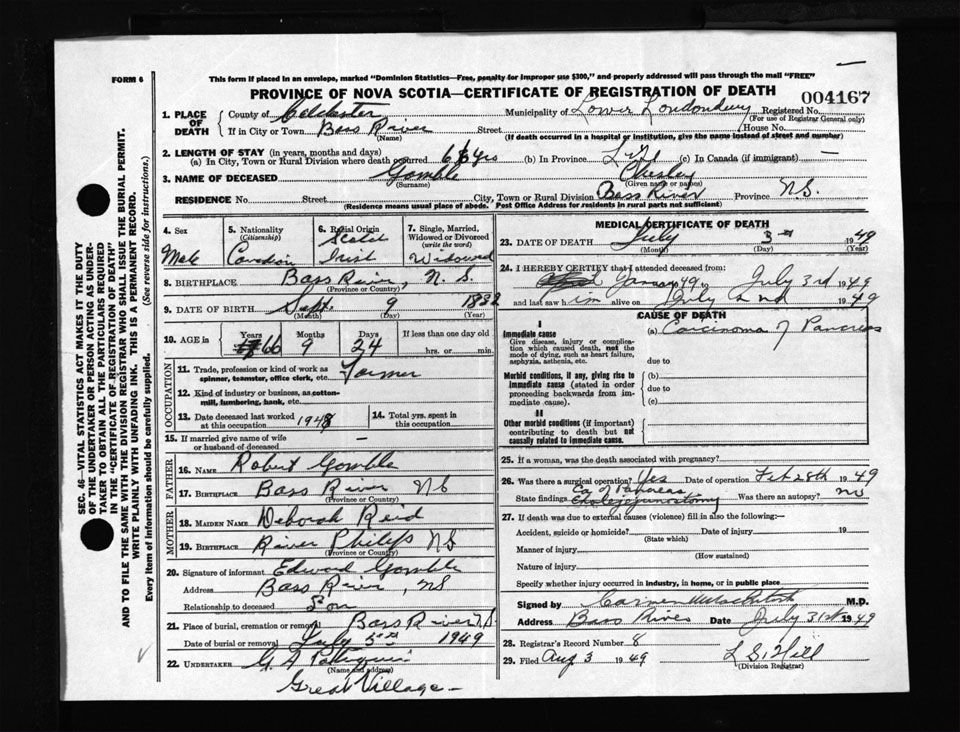 FORM 6
This form if placed in an envelope, marked "Dominion Statistics—Free, penalty for improper use $300," and properly addressed will pass through the mail "FREE"
PROVINCE OF NOVA SCOTIA—CERTIFICATE OF REGISTRATION OF DEATH
004167
1. PLACE OF DEATH County of Colchester Municipality of Lower Londonderry Registered No.
(For use of Registrar General only)
If in City or Town Bass River Street House No.
(Name) (If death occurred in a hospital or institution, give the name instead of street and number)
2. LENGTH OF STAY (in years, months and days)
(a) In City, Town or Rural Division where death occurred 66 yrs (b) In Province Life (c) In Canada (if immigrant) —
3. NAME OF DECEASED Gamble Chesley
(Surname) (Given name or names)
RESIDENCE No. Street City, Town or Rural Division Bass River Province N.S.
(Residence means usual place of abode. Post Office Address for residents in rural parts not sufficient)
4. Sex Male
5. Nationality (Citizenship) Canadian
6. Racial Origin Scotch Irish
7. Single, Married, Widowed or Divorced (write the word) Widowed
8. BIRTHPLACE Bass River, N.S.
(Province or Country)
9. DATE OF BIRTH Sept. 9 1882
(Month) (Day) (Year)
10. AGE in Years Months Days If less than one day old
66 9 24 hrs. or min.
OCCUPATION
11. Trade, profession or kind of work as spinner, teamster, office clerk, etc. Farmer
12. Kind of industry or business, as cotton-mill, lumbering, bank, etc.
13. Date deceased last worked at this occupation 1948
14. Total yrs. spent in this occupation
15. If married give name of wife or husband of deceased —
FATHER
16. NAME Robert Gamble
17. BIRTHPLACE Bass River NS
(Province or Country)
MOTHER
18. MAIDEN NAME Deborah Reid
19. BIRTHPLACE River Philip NS
(Province or Country)
20. Signature of informant Edward Gamble
Address Bass River, NS
Relationship to deceased Son
21. Place of burial, cremation or removal Bass River N.S.
Date of burial or removal July 5 1949
22. UNDERTAKER G. A.
(Name and address)
Great Village
MEDICAL CERTIFICATE OF DEATH
23. DATE OF DEATH July 3rd 1949
(Month) (Day) (Year)
24. I HEREBY CERTIFY that I attended deceased from:
January 1949 to July 3rd 1949
and last saw him alive on July 2nd 1949
CAUSE OF DEATH
I
Immediate cause (a) Carcinoma of Pancreas
Give disease, injury or complication which caused death, not the mode of dying, such as heart failure, asphyxia, asthenia, etc.
due to
Morbid conditions, if any, giving rise to immediate cause (stated in order proceeding backwards from immediate cause).
(b)
due to
(c)
II
Other morbid conditions (if important) contributing to death but not causally related to immediate cause.
25. If a woman, was the death associated with pregnancy?
26. Was there a surgical operation? Yes Date of operation Feb 28th 1949
Ca of Pancreas
State findings Cholecystjejunostomy Was there an autopsy? no
27. If death was due to external causes (violence) fill in also the following:—
Accident, suicide or homicide? Date of injury 19
(State which)
Manner of injury
(How sustained)
Nature of injury
Specify whether injury occurred in industry, in home, or in public place
Signed by M.D.
Address Bass River Date July 31st 1949
28. Registrar's Record Number 8
29. Filed Aug 3 1949 L S. Hill
(Division Registrar)
SEC. 46—VITAL STATISTICS ACT MAKES IT THE DUTY
OF THE UNDERTAKER OR PERSON ACTING AS UNDERTAKER TO OBTAIN ALL THE PARTICULARS REQUIRED
IN THE "CERTIFICATE OF REGISTRATION OF DEATH"
AND TO FILE THE SAME WITH THE DIVISION REGISTRAR WHO SHALL ISSUE THE BURIAL PERMIT.
WRITE PLAINLY WITH UNFADING INK. THIS IS A PERMANENT RECORD.
Every item of information should be carefully supplied. (See reverse side for instructions.)